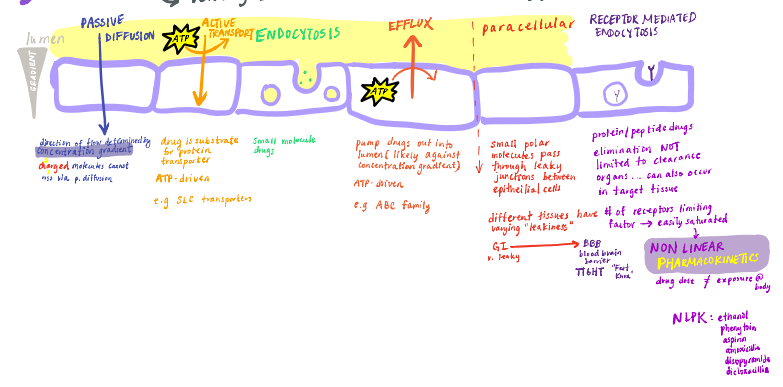 PASSIVE
DIFFUSION
ACTIVE
TRANSPORT
ATP
ENDOCYTOSIS
EFFLUX
ATP
paracellular
RECEPTOR MEDIATED
ENDOCYTOSIS
lumen
GRADIENT
direction of flow determined by
concentration gradient
charged molecules cannot
via p. diffusion
drug is substrate
for protein
transporter
ATP-driven
e.g SLC transporters
Small molecule
drugs
pump drugs out into
lumen (likely against
concentration gradient)
ATP-driven
e.g ABC family
small polar
molecules pass
through leaky
junctions between
epithelial cells
different tissues have
varying "leakiness"
GI → BBB
v. leaky
blood brain
barrier
TIGHT "Fort
Knox"
protein/peptide drugs
elimination NOT
limited to clearance
organs... can also occur
in target tissue
# of receptors limiting
factor → easily saturated
NON LINEAR
PHARMACOKINETICS
drug dose ≠ exposure @
body
NLPK: ethanol
phenytoin
aspirin
amoxicillin
disopyramide
dicloxacillin